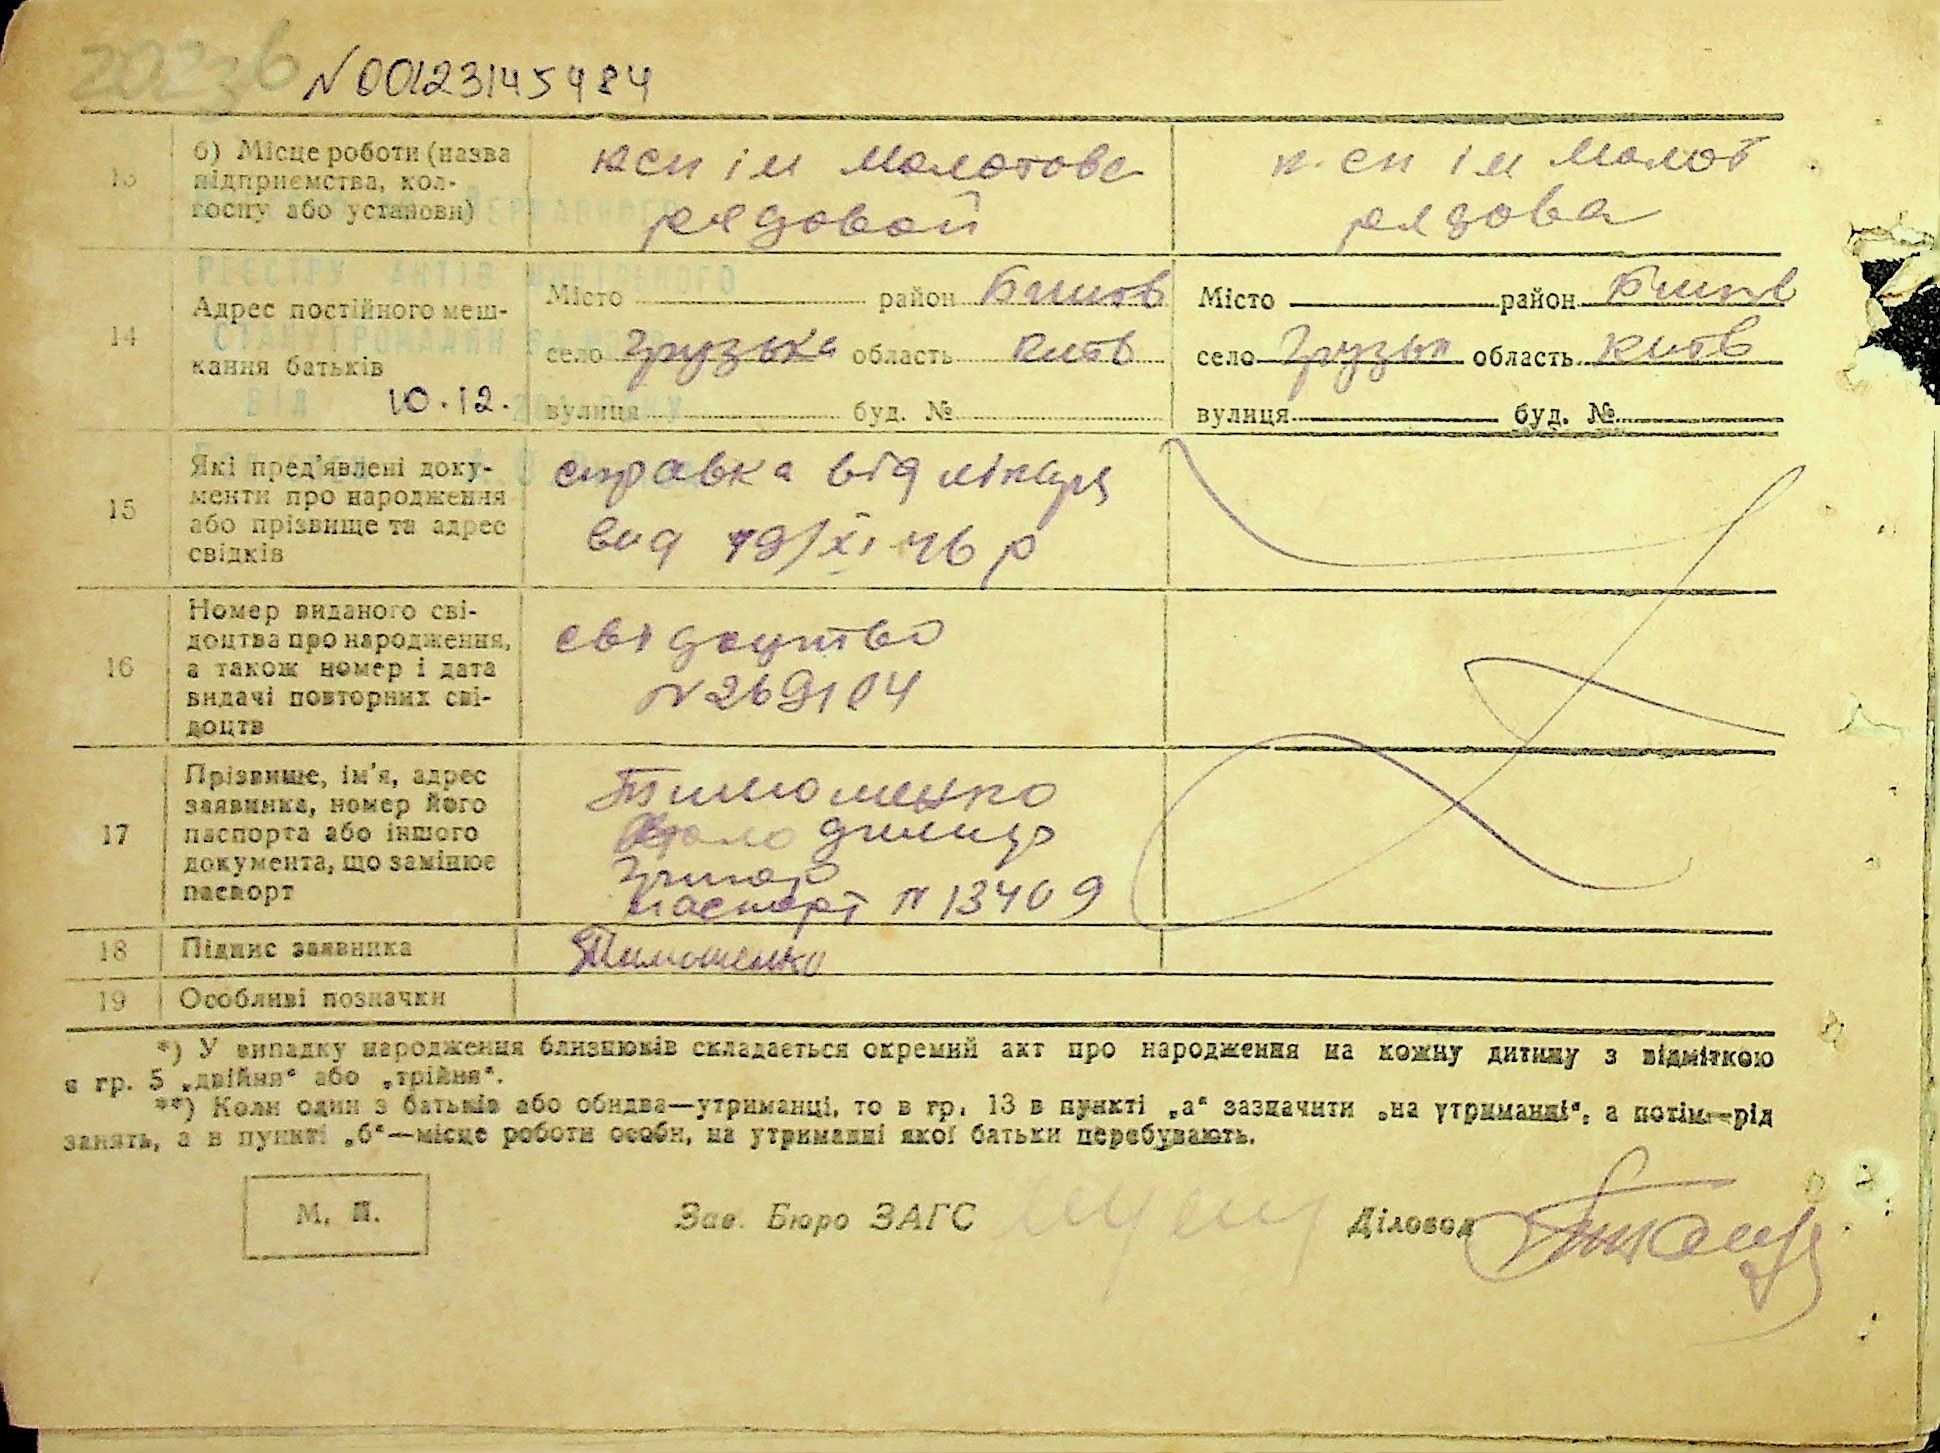 N 00123145984
13
б) Місце роботи (назва підприємства, кол-госпу або установи)
ксп ім Молотова
рядовой
к.сп ім Молот
рядова
14
Адрес постійного меш-
кання батьків
10.12.
Місто район Бишів
село Грузька область Київ
вулиця буд. №
Місто район Бишів
село Грузьк область Київ
вулиця буд. №
15
Які пред'явлені доку-
менти про народження
або прізвище та адрес
свідків
справка від лікаря
вид 19/XI 46 р
16
Номер виданого сві-
доцтва про народження,
а також номер і дата
видачі повторних сві-
доцтв
свідоцтво
N 269104
17
Прізвище, ім'я, адрес
заявника, номер його
паспорта або іншого
документа, що замінює
паспорт
Тимошенко
паспорт N 13409
18
Підпис заявника
Тимошенко
19
Особливі позначки
*) У випадку народження близнюків складається окремий акт про народження на кожну дитину з відміткою
в гр. 5 „двійня“ або „трійня“.
**) Коли один з батьків або обидва—утриманці, то в гр. 13 в пункті „а“ зазначити „на утриманні“, а потім—рід
занять, а в пункті „б“—місце роботи особи, на утриманні якої батьки перебувають.
М. П.
Зав. Бюро ЗАГС
Діловод